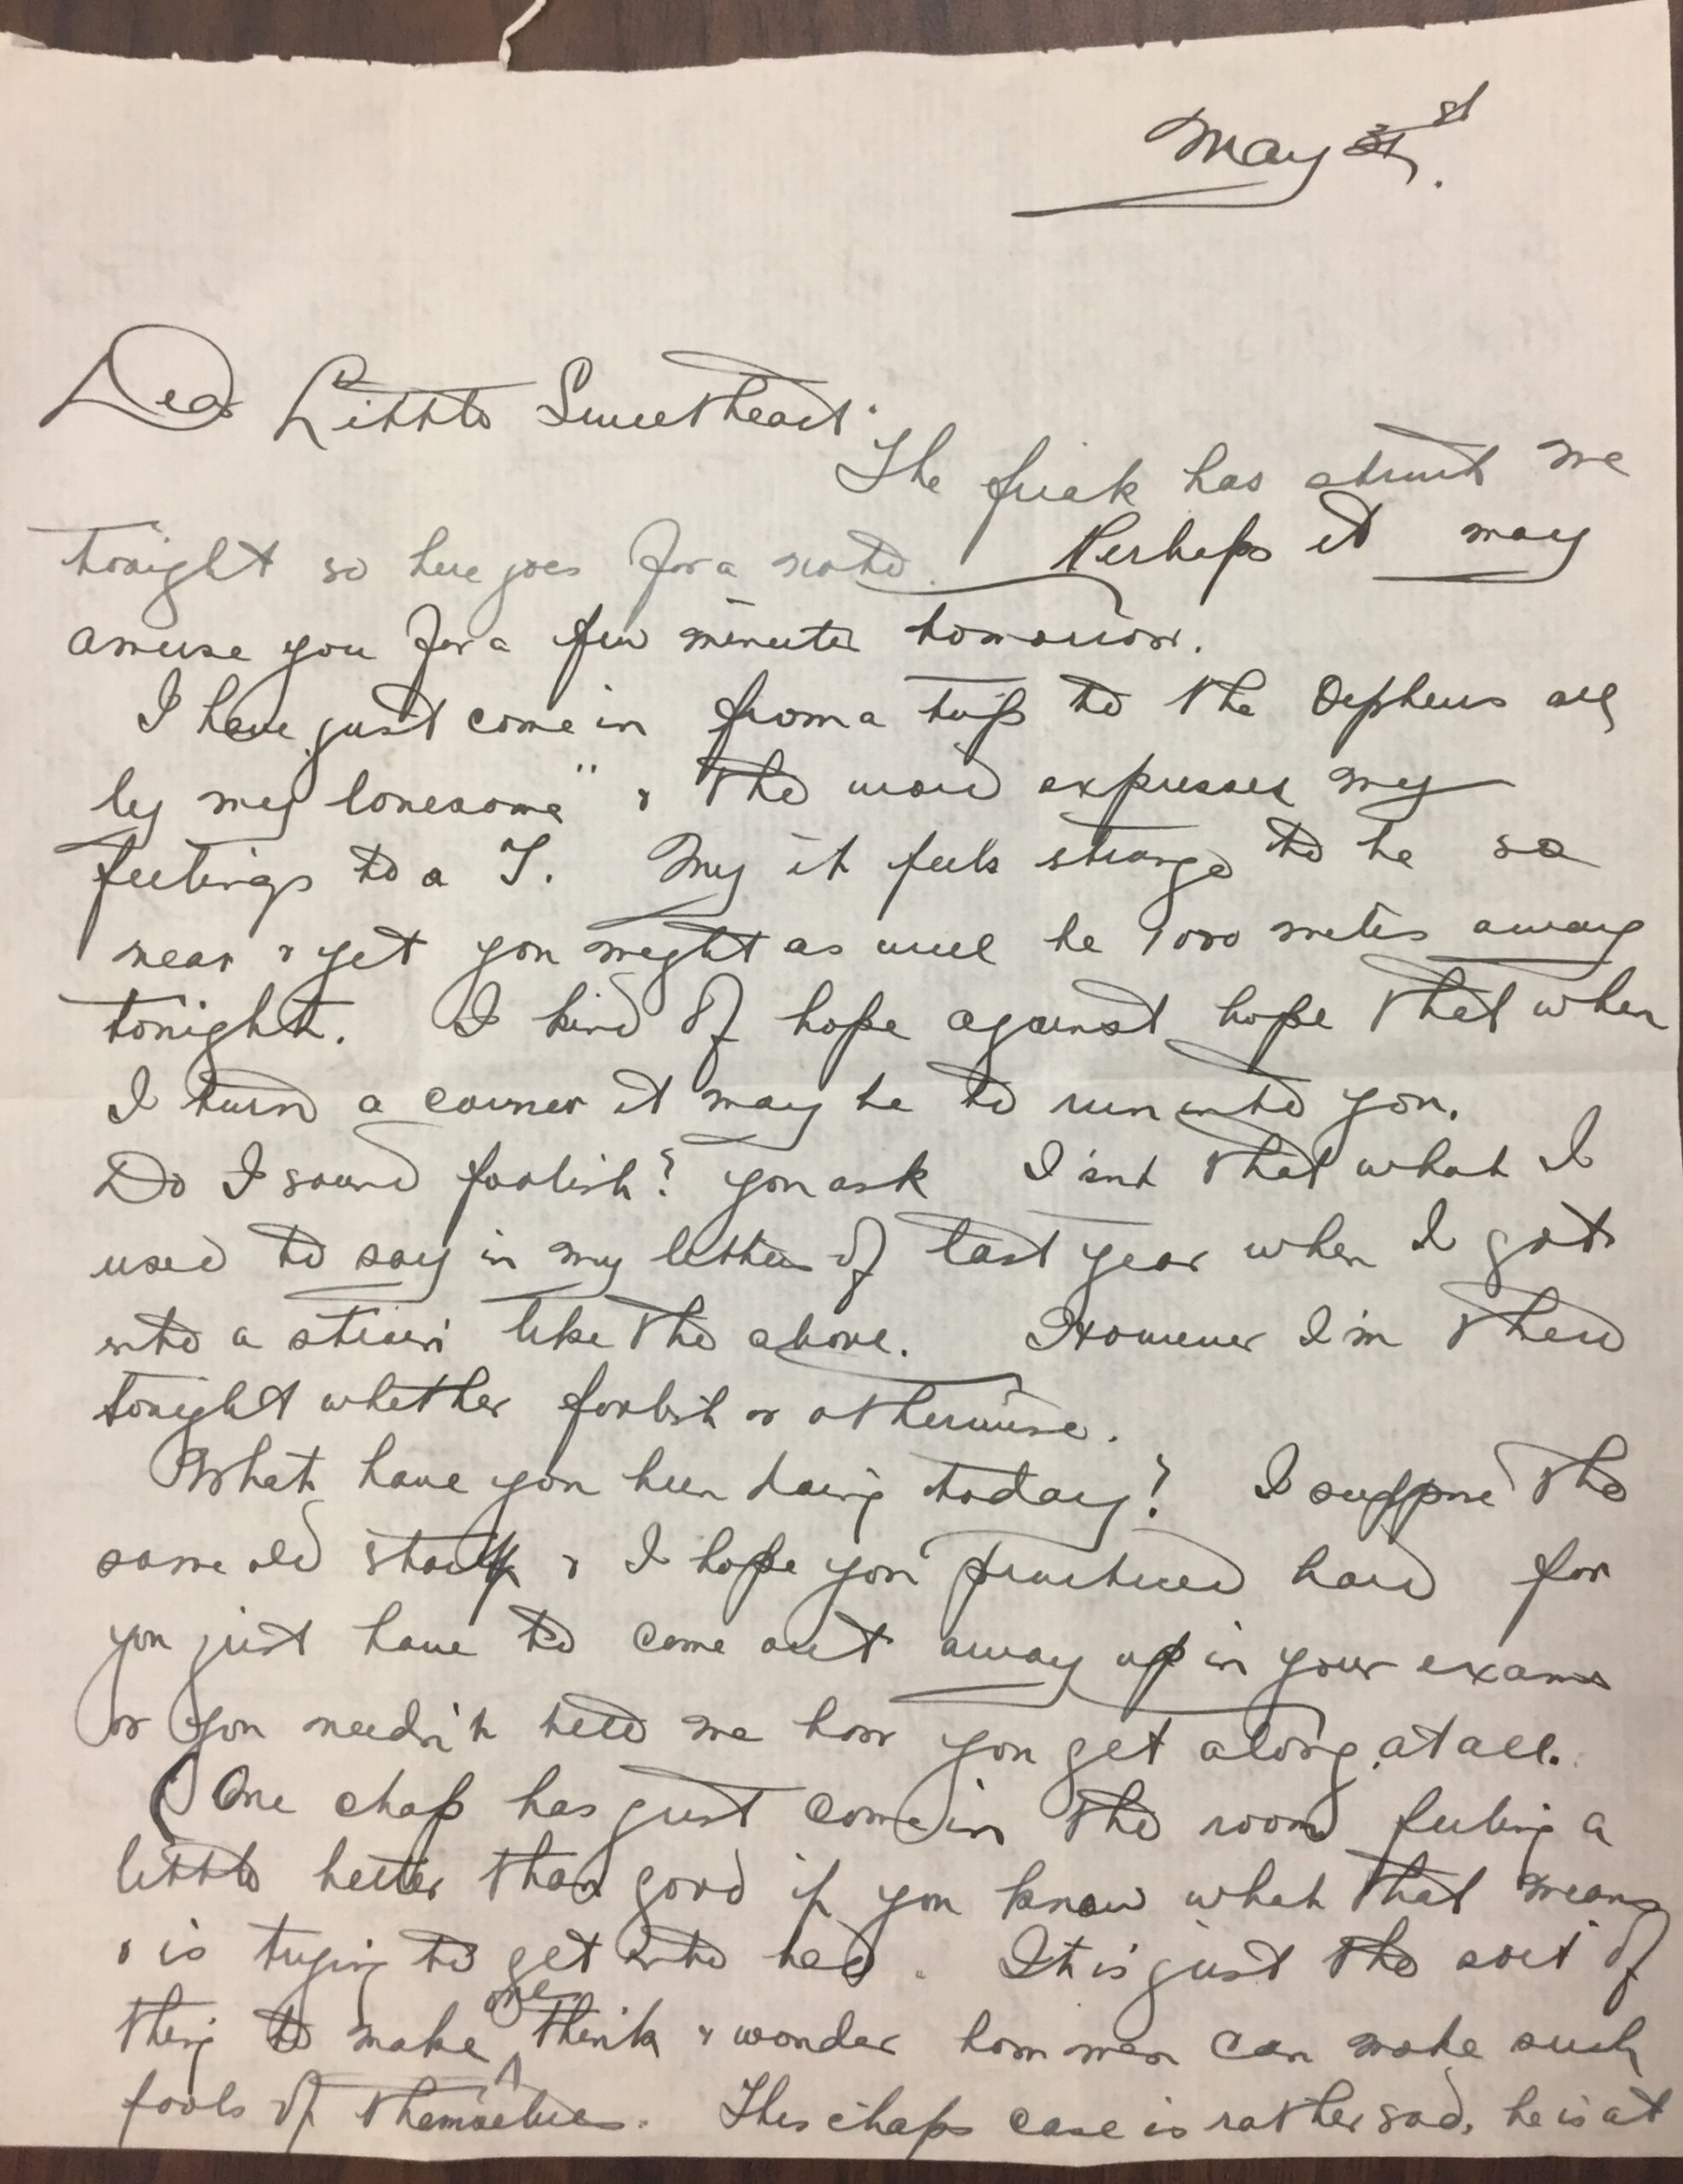 May 31st.
Dear Little Sweetheart:
The freak has struck me
tonight so here goes for a note. Perhaps it may
amuse you for a few minutes tomorrow.
I have just come in from a trip to the Orpheus all
by my lonesome" & the word expresses my
feelings to a T. My it feels strange to be so
near & yet you might as well be 1000 miles away
tonight. I kind of hope against hope that when
I turn a corner it may be to run into you.
Do I sound foolish? you ask Isnt that what I
used to say in my letters of last year when I got
into a like the above. However I'm there
tonight whether foolish or otherwise.
What have you been doing today? I suppose the
same old story & I hope you practiced hard for
you just have to come out away up in your exams
or you needn't tell me how you get along at all.
(One chap has just come in the room feeling a
little better than good if you know what that means
& is trying to get into bed. It is just the sort of
thing to make one think & wonder how men can make such
fools of themselves. This chaps case is rather sad, he is at